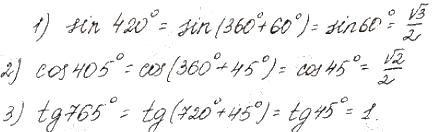 1) sin 420° = sin(360°+60°) = sin60° = √3/2
2) cos405° = cos(360°+45°) = cos45° = √2/2
3) tg765° = tg(720°+45°) = tg45° = 1.